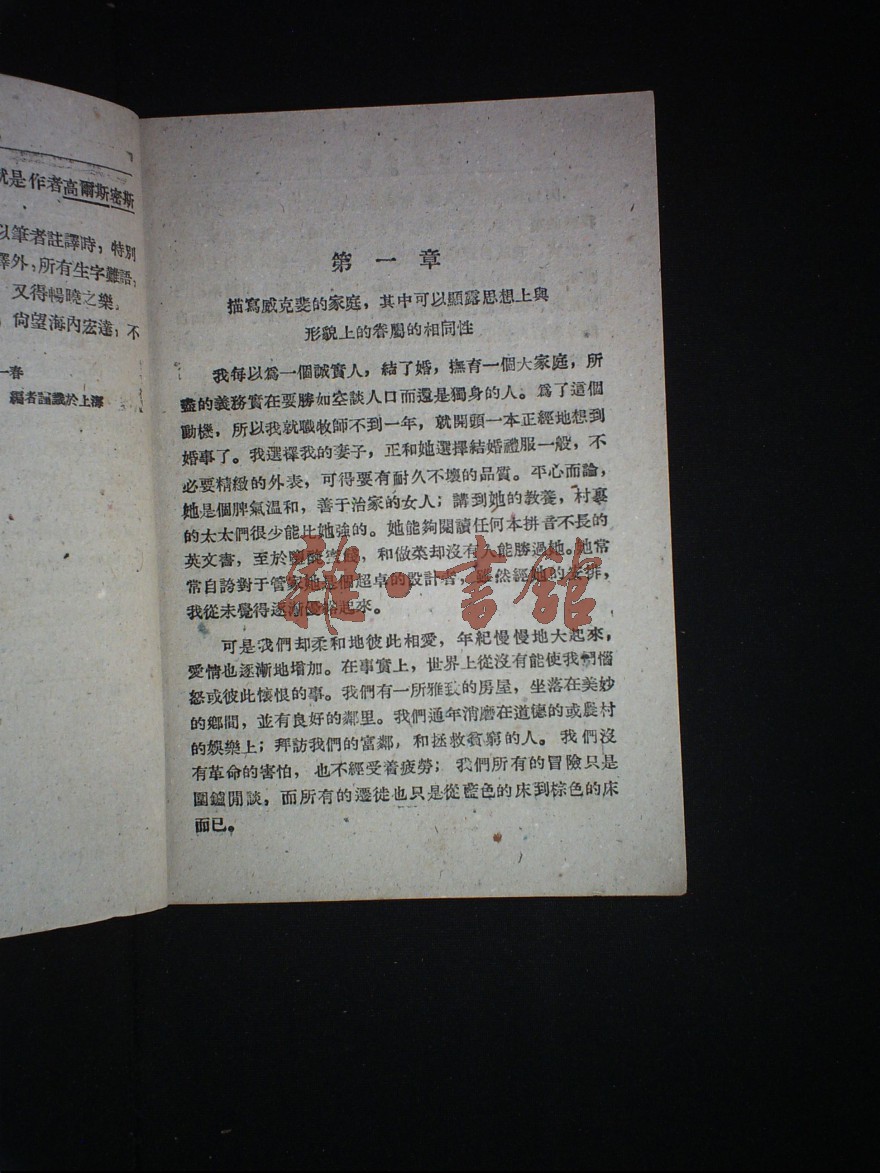 就是作者高爾斯密斯
以筆者註譯時，特別
譯外，所有生字難語，
又得暢曉之樂。
尙望海內宏達，不
一春
編者謹識於上海
第一章
描寫威克斐的家庭，其中可以顯露思想上與
形貌上的眷屬的相同性
我每以爲一個誠實人，結了婚，撫育一個大家庭，所
盡的義務實在要勝如空談人口而還是獨身的人。爲了這個
動機，所以我就職牧師不到一年，就開頭一本正經地想到
婚事了。我選擇我的妻子，正和她選擇結婚禮服一般，不
必要精緻的外表，可得要有耐久不壞的品質。平心而論，
她是個脾氣温和，善于治家的女人；講到她的教養，村裏
的太太們很少能比她強的。她能夠閱讀任何本拼音不長的
英文書，至於鹽醃，和做菜却沒有人能勝過她。她常
常自誇對于管家她是個超卓的設計者，雖然經她的安排，
我從未覺得逐漸優裕起來。
可是我們却柔和地彼此相愛，年紀慢慢地大起來，
愛情也逐漸地增加。在事實上，世界上從沒有能使我們惱
怒或彼此懷恨的事。我們有一所雅致的房屋，坐落在美妙
的鄉間，並有良好的鄰里。我們通年消磨在道德的或農村
的娛樂上；拜訪我們的富鄰，和拯救貧窮的人。我們沒
有革命的害怕，也不經受着疲勞；我們所有的冒險只是
圍鑪閒談，而所有的遷徙也只是從藍色的床到棕色的床
而已。
雜·書館